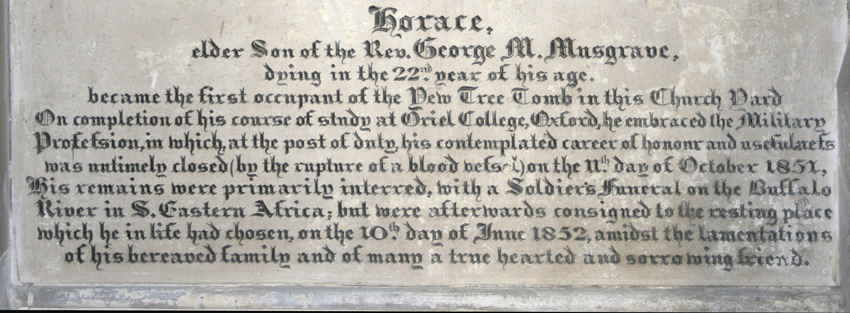 Horace,
elder Son of the Rev. George M. Musgrave,
dying in the 22nd year of his age.
became the first occupant of the Yew Tree Tomb in this Church Yard
On completion of his course of study at Oriel College, Oxford, he embraced the Military
Profession, in which, at the post of duty, his contemplated career of honour and usefulness
was untimely closed (by the rupture of a blood vessel) on the 11th day of October 1851,
His remains were primarily interred, with a Soldier's Funeral on the Buffalo
River in S. Eastern Africa; but were afterwards consigned to the resting place
which he in life had chosen, on the 10th day of June 1852, amidst the lamentations
of his bereaved family and of many a true hearted and sorrowing friend.